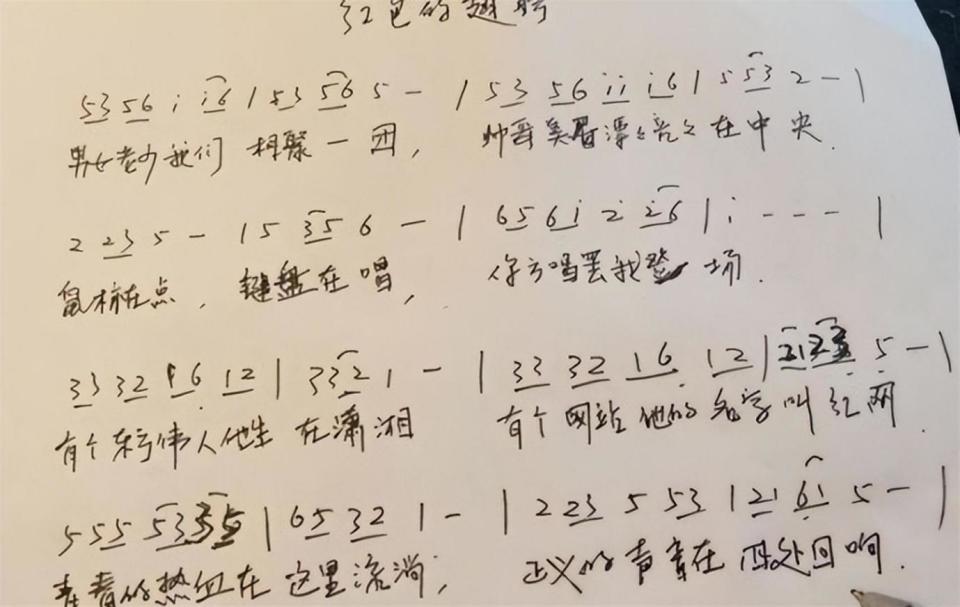 红色的翅膀
53 56 i i6 | 53 56 5 - | 53 56 ii i6 | 5 53 2 - |
男女老少我们 相聚一团， 帅哥美眉漂々亮々在中央.
2 23 5 - | 5 35 6 - | 656i 2 26 | i - - - |
鼠标在点， 键盘在唱， 你方唱罢我登场.
33 32 16 12 | 332 1 - | 33 32 16 12 | 5 - |
有个伟人他生在潇湘 有个网站他的名字叫红网
5 55 53 35 | 65 32 1 - | 2 23 5 53 | 21 61 5 - |
青春的热血在这里流淌； 正义的声音在四处回响.